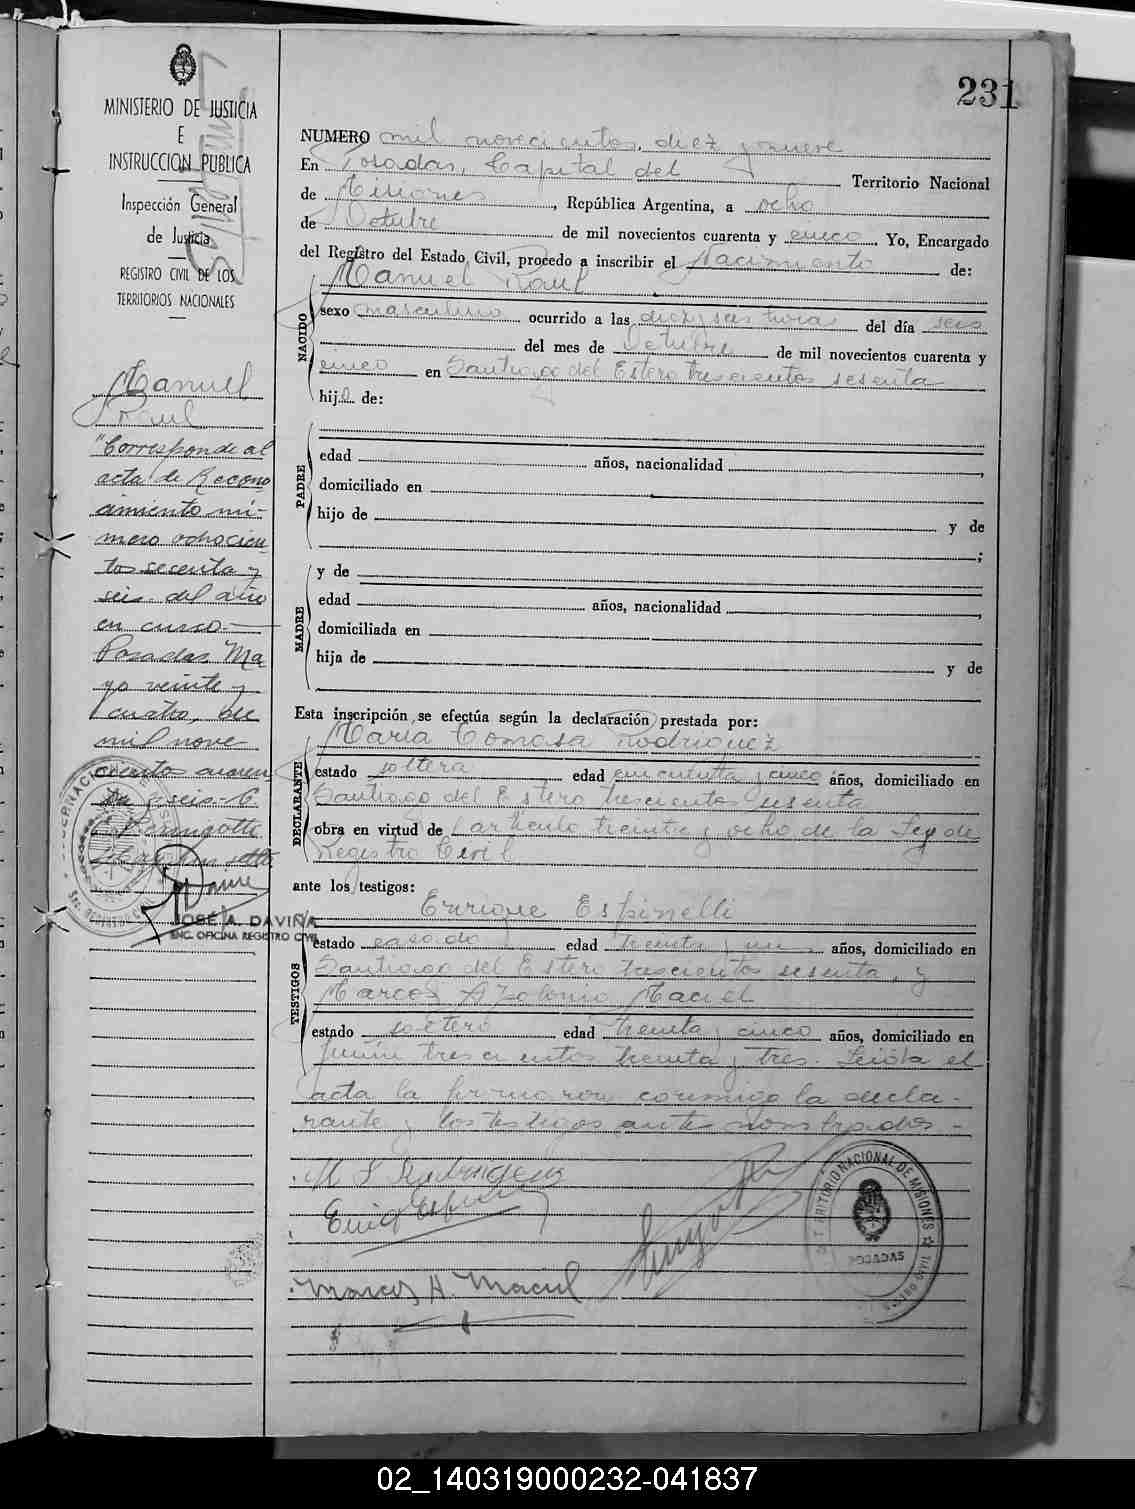 231
MINISTERIO DE JUSTICIA
E
INSTRUCCION PUBLICA
Inspección General
de Justicia
REGISTRO CIVIL DE LOS
TERRITORIOS NACIONALES
Manuel
Raul
"Corresponde al
acta de Recono
cimiento nú-
mero ochocien
tos sesenta y
seis del año
en curso.-
Posadas Ma
yo veinte y
cuatro, de
mil nove
cientos cuaren
ta y seis.-
JOSÉ A. DAVIÑA
ENC. OFICINA REGISTRO CIVIL
NUMERO mil novecientos, diez y nueve
En Posadas, Capital del Territorio Nacional
de Misiones, República Argentina, a ocho
de Octubre de mil novecientos cuarenta y cinco. Yo, Encargado
del Registro del Estado Civil, procedo a inscribir el Nacimiento de:
Manuel Raul
NACIDO
sexo masculino ocurrido a las diez y seis horas del día seis
del mes de Octubre de mil novecientos cuarenta y
cinco en Santiago del Estero trescientos sesenta
hijo de:
PADRE
edad años, nacionalidad
domiciliado en
hijo de y de
;
y de
MADRE
edad años, nacionalidad
domiciliada en
hija de y de
Esta inscripción se efectúa según la declaración prestada por:
Maria Tomasa Rodriguez
DECLARANTE
estado soltera edad cincuenta y cinco años, domiciliado en
Santiago del Estero trescientos sesenta
obra en virtud de artículo treinta y ocho de la Ley de
Registro Civil
ante los testigos:
Enrique Espinelli
TESTIGOS
estado casado edad treinta y un años, domiciliado en
Santiago del Estero trescientos sesenta, y
Marcos Apolonio Maciel
estado soltero edad treinta y cinco años, domiciliado en
Junín trescientos treinta y tres. Leída el
acta la firmaron conmigo la decla-
rante y los testigos ante nombrados-
Marcos A. Maciel
TERRITORIO NACIONAL DE MISIONES
POSADAS
02_140319000232-041837